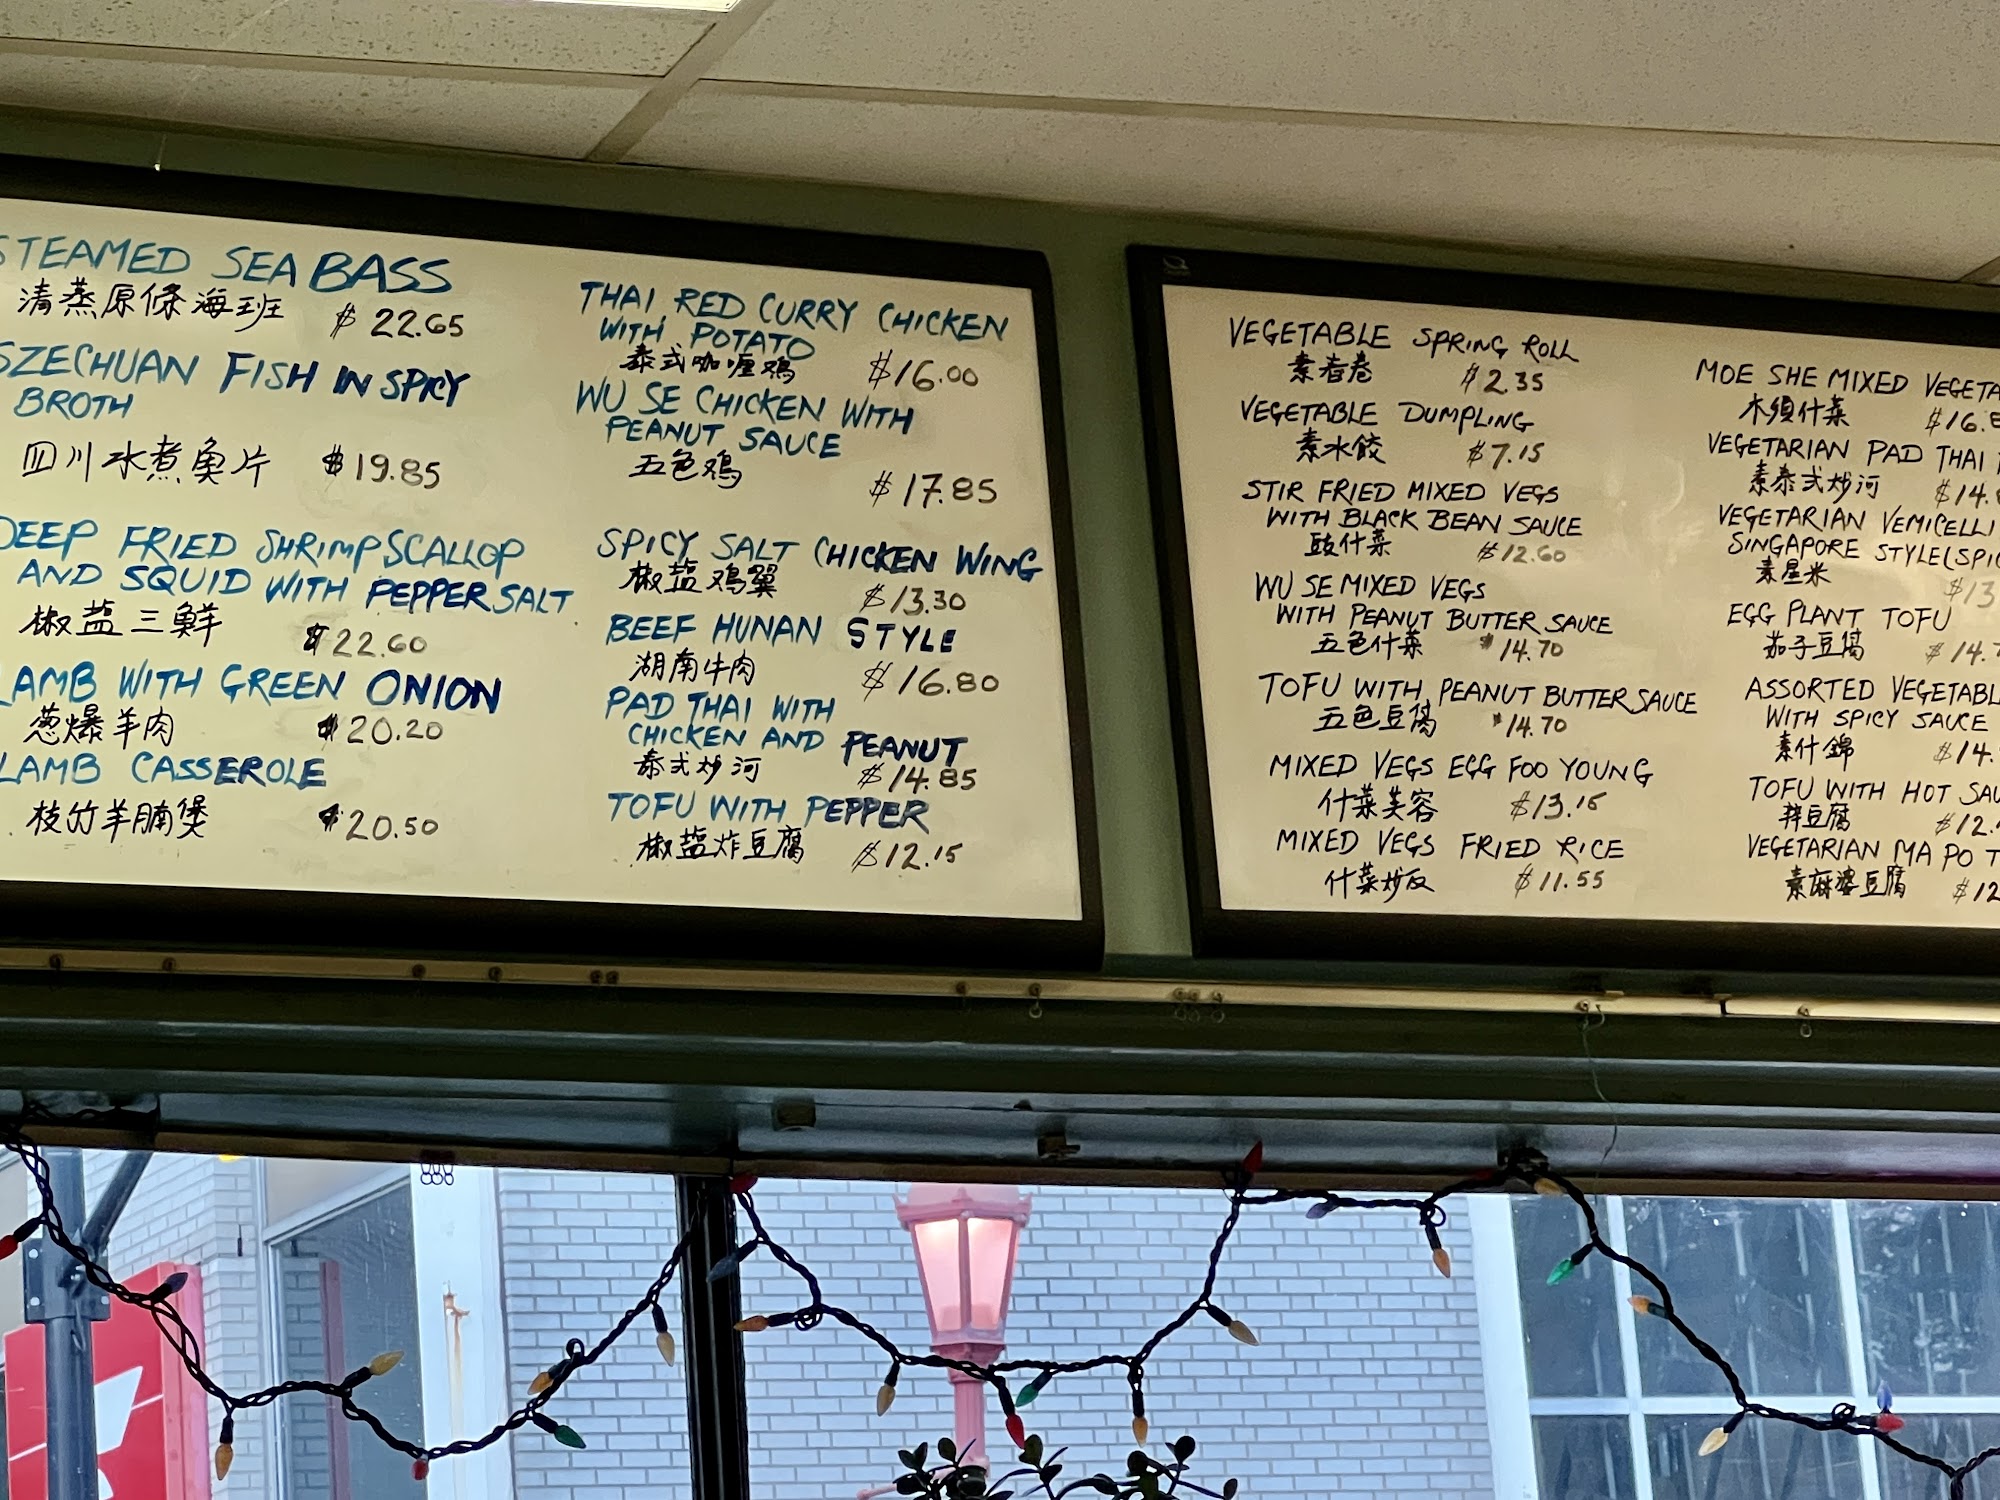 STEAMED SEA BASS
清蒸原條海班 $22.65
SZECHUAN FISH IN SPICY
BROTH
四川水煮魚片 $19.85
DEEP FRIED SHRIMP SCALLOP
AND SQUID WITH PEPPER SALT
椒盐三鮮 $22.60
LAMB WITH GREEN ONION
葱爆羊肉 $20.20
LAMB CASSEROLE
枝竹羊腩煲 $20.50
THAI RED CURRY CHICKEN
WITH POTATO
泰式咖喱鸡 $16.00
WU SE CHICKEN WITH
PEANUT SAUCE
五色鸡 $17.85
SPICY SALT CHICKEN WING
椒盐鸡翼 $13.30
BEEF HUNAN STYLE
湖南牛肉 $16.80
PAD THAI WITH
CHICKEN AND PEANUT
泰式炒河 $14.85
TOFU WITH PEPPER
椒盐炸豆腐 $12.15
VEGETABLE SPRING ROLL
素春卷 $2.35
VEGETABLE DUMPLING
素水餃 $7.15
STIR FRIED MIXED VEGS
WITH BLACK BEAN SAUCE
豉什菜 $12.60
WU SE MIXED VEGS
WITH PEANUT BUTTER SAUCE
五色什菜 $14.70
TOFU WITH PEANUT BUTTER SAUCE
五色豆腐 $14.70
MIXED VEGS EGG FOO YOUNG
什菜芙容 $13.15
MIXED VEGS FRIED RICE
什菜炒反 $11.55
MOE SHE MIXED VEGETA
木須什菜 $16.8
VEGETARIAN PAD THAI
素泰式炒河 $14.
VEGETARIAN VEMICELLI
SINGAPORE STYLE(SPIC
素星米 $13
EGG PLANT TOFU
茄子豆腐 $14.7
ASSORTED VEGETABL
WITH SPICY SAUCE
素什錦 $14.
TOFU WITH HOT SAU
拌豆腐 $12.
VEGETARIAN MA PO T
素麻婆豆腐 $12